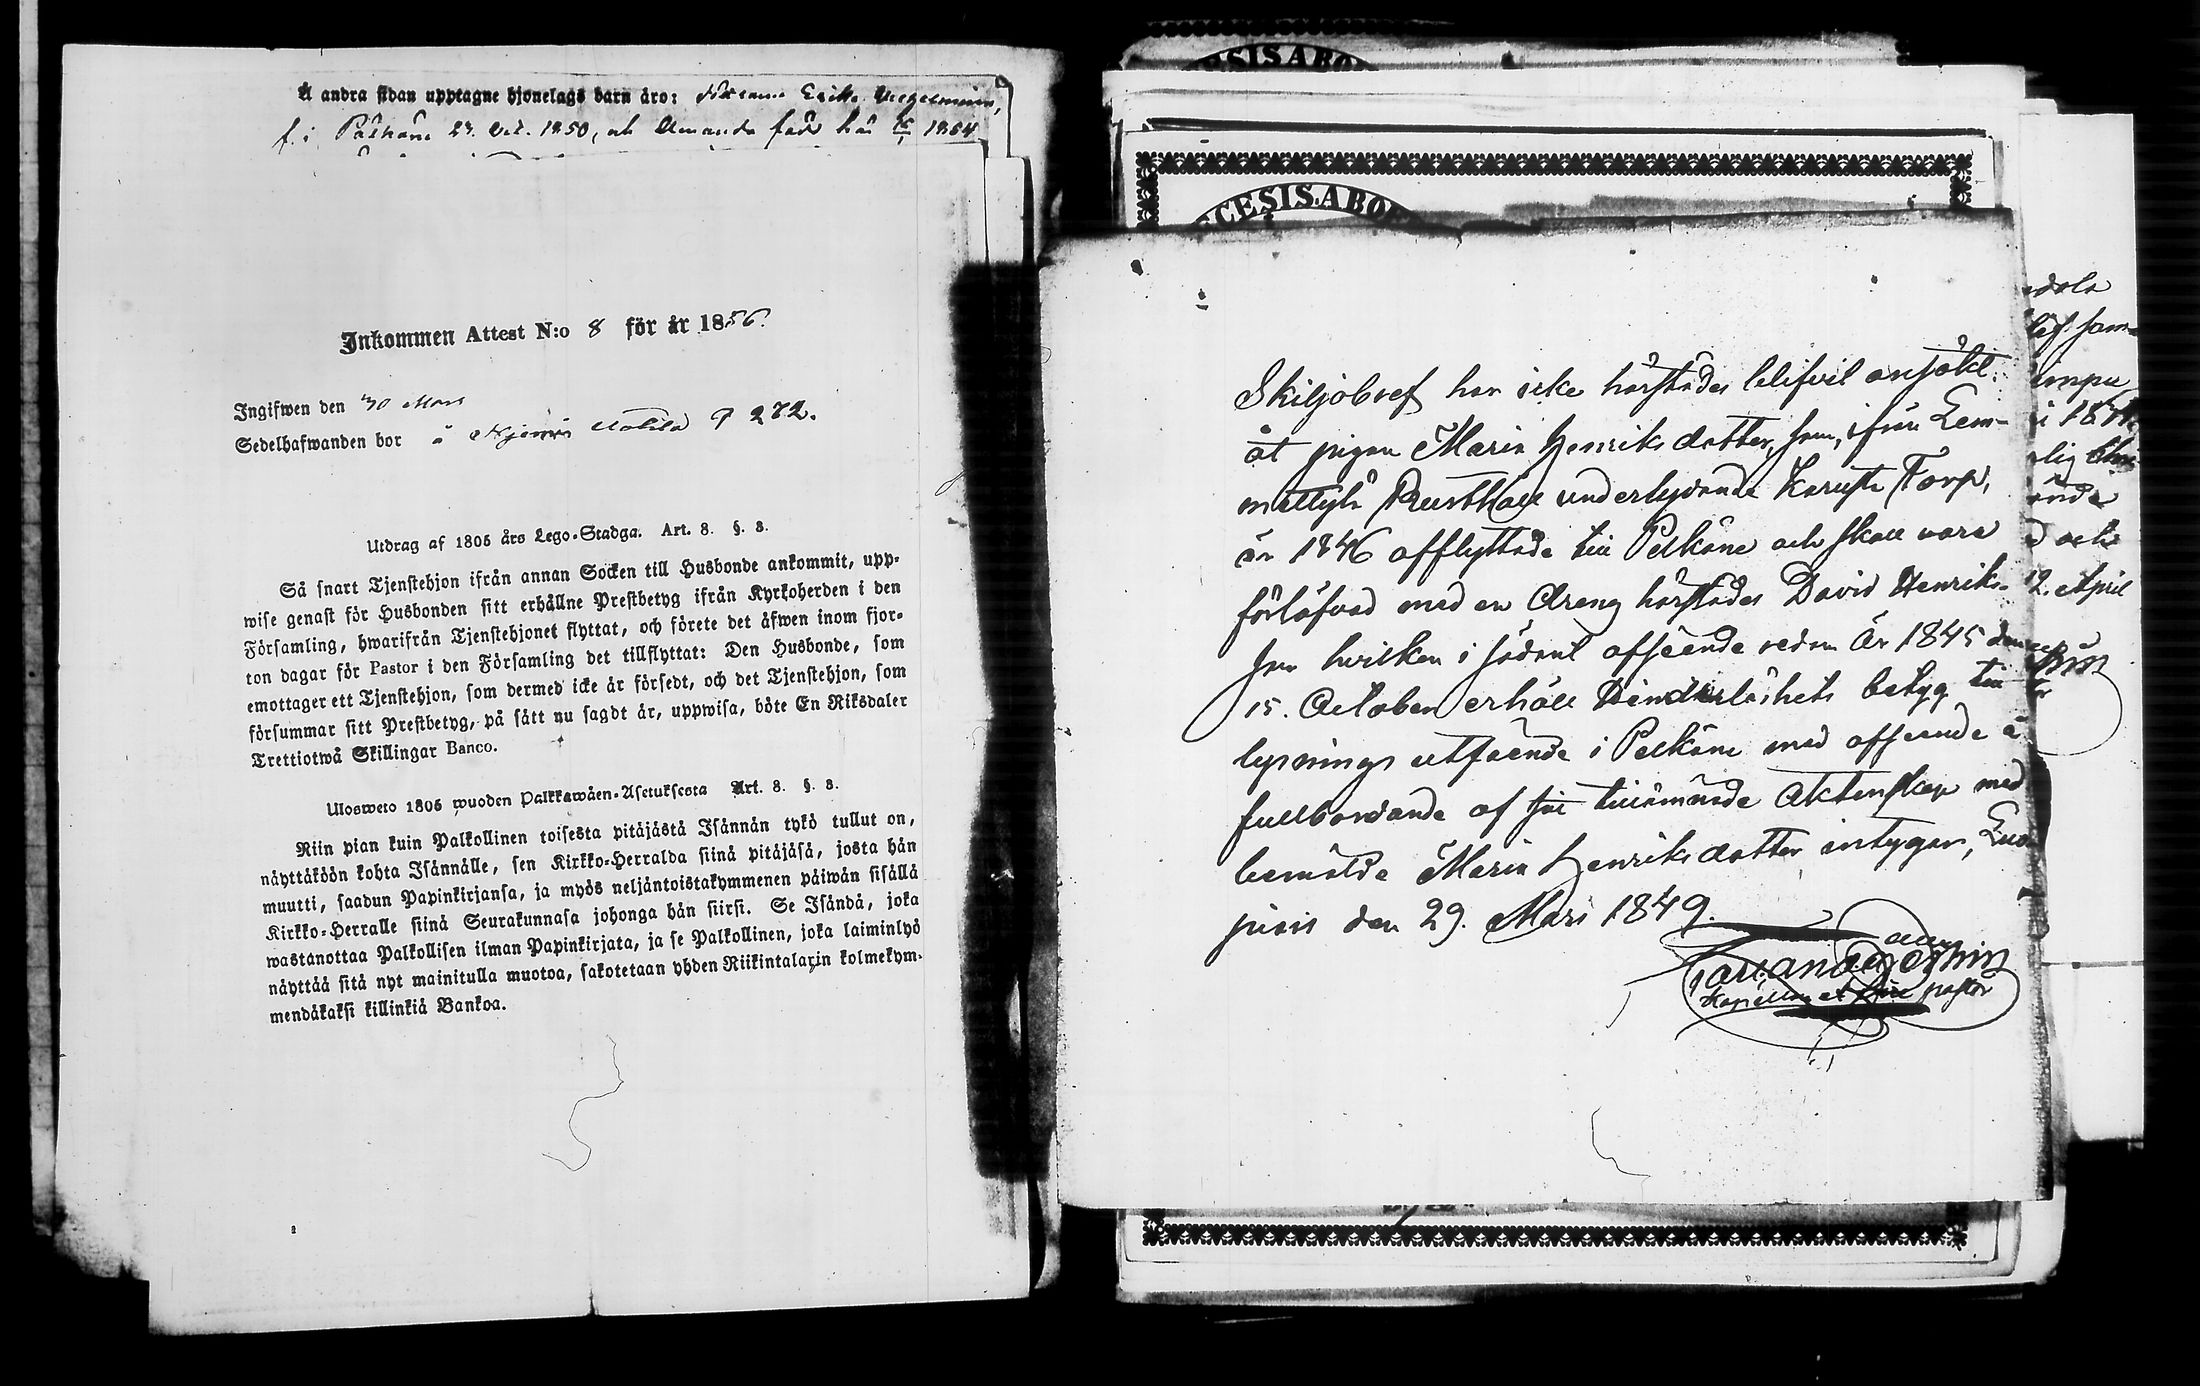 Å andra sidan upptagne hjonelags barn äro:
f. i Pälkäne 1850, och Amanda född här
Inkommen Attest N:o 8 för år 1856.
Ingifwen den 30 Mars
Sedelhafwanden bor å 272.
Utdrag af 1805 års Lego-Stadga. Art. 8. §. 3.
Så snart Tjenstehjon ifrån annan Socken till Husbonde ankommit, upp-
wise genast för Husbonden sitt erhållne Prestbetyg ifrån Kyrkoherden i den
Församling, hwarifrån Tjenstehjonet flyttat, och förete det äfwen inom fjor-
ton dagar för Pastor i den Församling det tillflyttat: Den Husbonde, som
emottager ett Tjenstehjon, som dermed icke är försedt, och det Tjenstehjon, som
försummar sitt Prestbetyg, på sätt nu sagdt är, uppwisa, böte En Riksdaler
Trettiotwå Skillingar Banco.
Ulosweto 1805 wuoden Palkkawäen-Asetuksesta Art. 8. §. 3.
Niin pian kuin Palkollinen toisesta pitäjästä Isännän tykö tullut on,
näyttäköön kohta Isännälle, sen Kirkko-Herralda siinä pitäjäsä, josta hän
muutti, saadun Papinkirjansa, ja myös neljäntoistakymmenen päiwän sisällä
Kirkko-Herralle siinä Seurakunnasa johonga hän siirsi. Se Isändä, joka
wastanottaa Palkollisen ilman Papinkirjata, ja se Palkollinen, joka laiminlyö
näyttää sitä nyt mainitulla muotoa, sakotetaan yhden Riikintalarin kolmekym-
mendäkaksi killinkiä Bankoa.
CESIS.ABO
Skiljobref har icke härstädes blifvit ansökt
åt pigan Maria Henriksdotter, som, ifrån Lem-
mettylä Rusthåll underlydande Torp,
år 1846 afflyttade till Pelkäne och skall vara
förlofvad med en dräng härstädes David Henriks-
son hvilken i sådant afseende redan år 1845 den
15. October erhöll Hinderlöshets betyg till
lysnings utfående i Pelkäne med afseende å
fullbordande af sitt tillämnade äktenskap med
bemälde Maria Henriksdotter intygar,
den 29. Mars 1849.
pastor
i 18
och
12. April